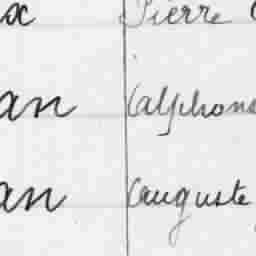 x Pierre
an (alphons
an (auguste